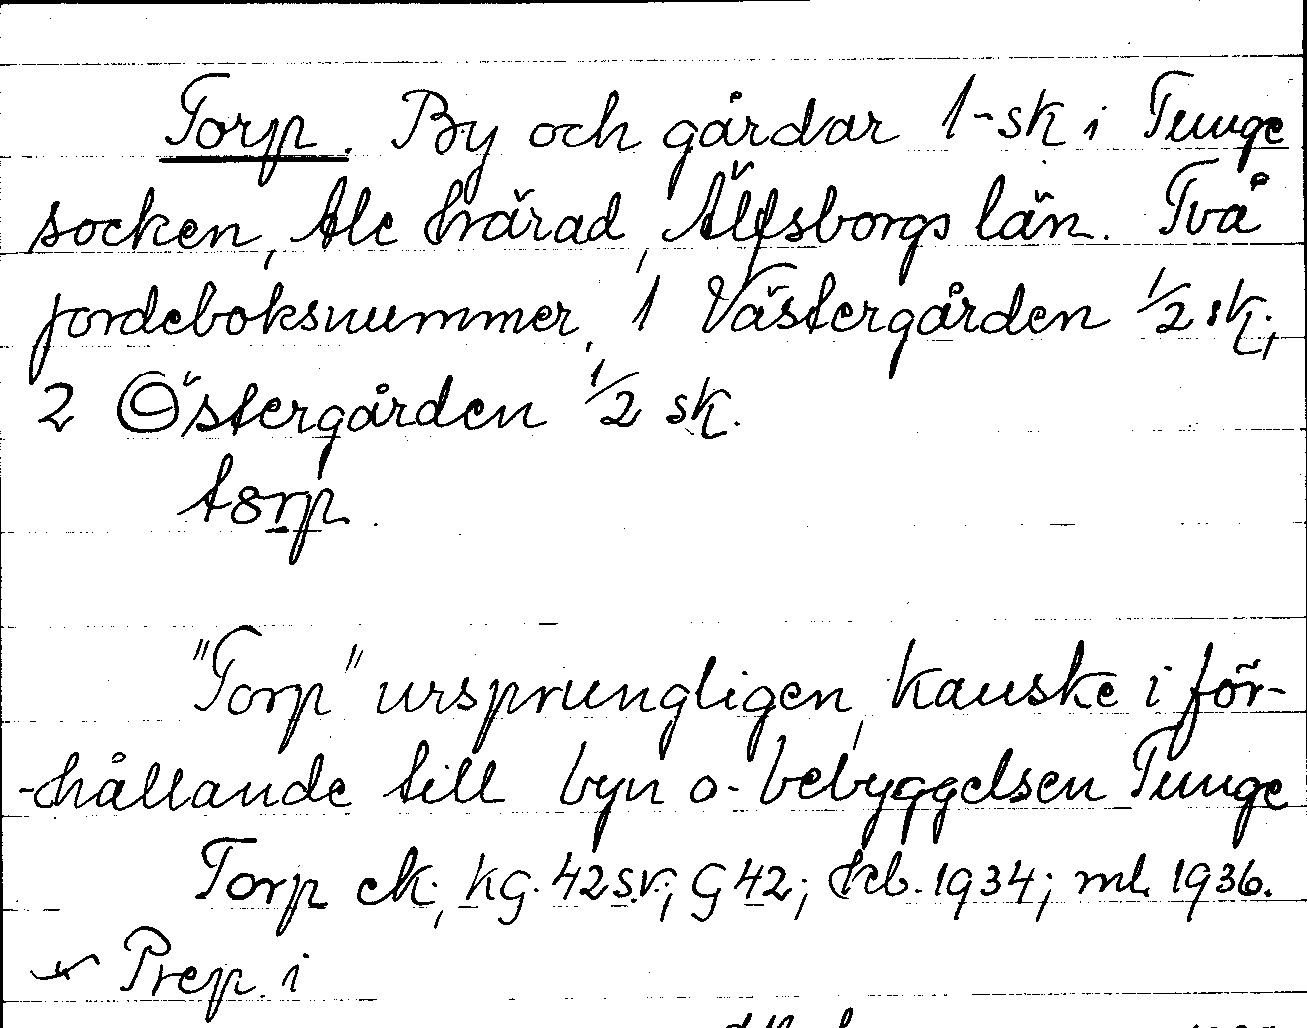 Torp. By och gårdar 1-sk i Tunge
socken, Ale härad, Älfsborgs län. Två
jordeboksnummer, 1 Västergården 1/2 sk.,
2 Östergården 1/2 sk.
tørp.
"Torp" ursprungligen, kanske i för-
-hållande till byn o. bebyggelsen Tunge
Torp ek., kg. 42 sv.; G 42; hcb. 1934; ml. 1936.
Prep. i